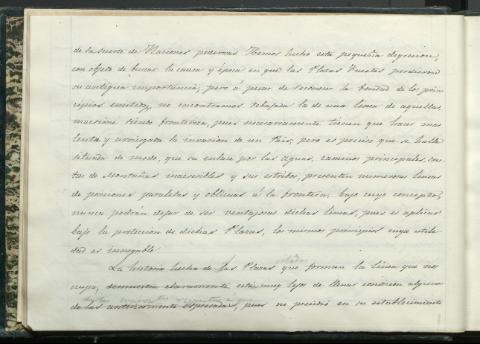 de la suerte de Naciones poderosas. Hemos hecho esta pequeña digresion,
con objeto de buscar la causa y época en que las Plazas Fuertes perdieron
su antigua importancia; pero á pesar de reconocer la bondad de los prin
cipios emitidos, no encontramos rebajada la de una linea de aquellas,
maxime siendo fronteriza, pues necesariamente tienen que hacer mas
lenta y arriesgada la invasion de un Pais; pero es preciso que se halle
situada de modo, que su enlace por las aguas, caminos principales, cres
tas de Montañas inaccesibles y sus estribos, presenten numerosas lineas
de posiciones paralelas y oblicuas á la frontera; bajo cuyo concepto,
nunca podrán dejar de ser ventajosas dichas lineas, pues se aplica
bajo la proteccion de dichas Plazas, los mismos principios cuya utili
dad es innegable.
La historia hecha de las Plazas que forman la linea que nos
ocupa, demuestra claramente está muy lejos de llenar condicion alguna
de las anteriormente espresadas, pues no presidió en su establecimiento